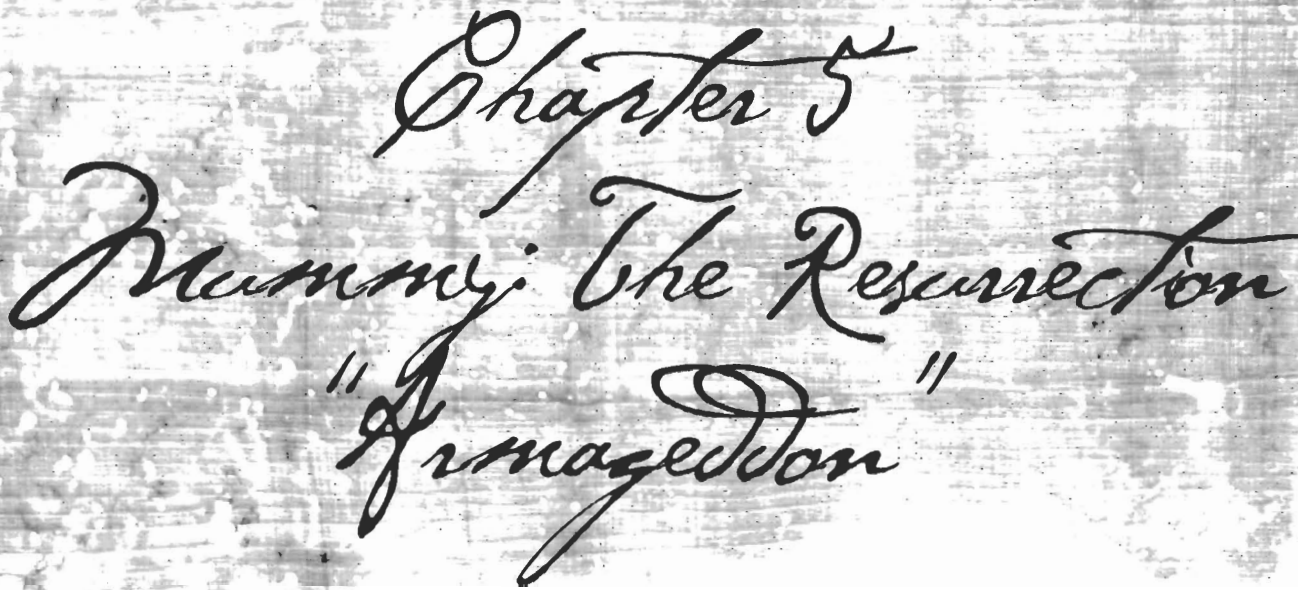 Chapter 5
Mummy: The Resurrection
"Armageddon"